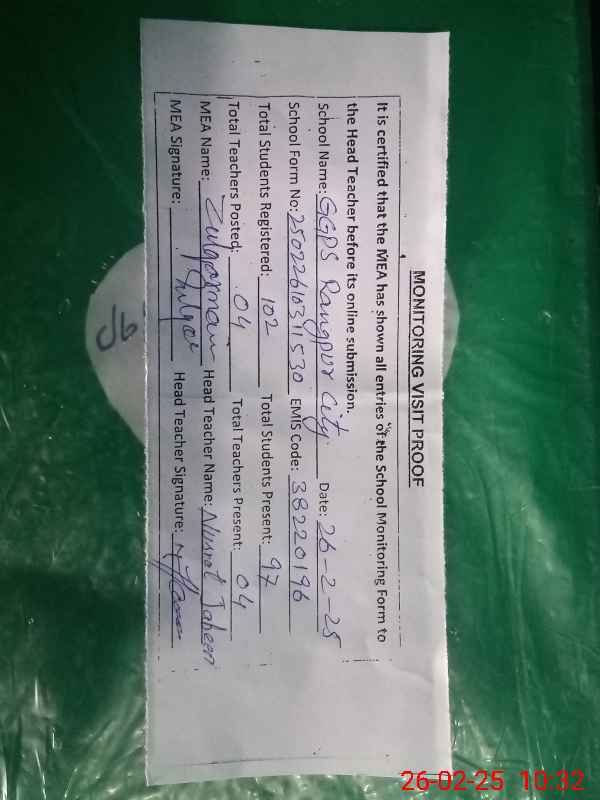 MONITORING VISIT PROOF
It is certified that the MEA has shown all entries of the School Monitoring Form to
the Head Teacher before its online submission.
School Name: GGPS Rangpur City Date: 26-2-25
School Form No: 250226103 11530 EMIS Code: 38220196
Total Students Registered: 102 Total Students Present: 97
Total Teachers Posted: 04 Total Teachers Present: 04
MEA Name: Zulqarnain Head Teacher Name: Nusrat Jabeen
MEA Signature: Head Teacher Signature:
26-02-25 10:32